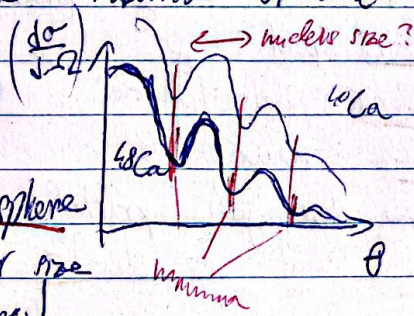 (dσ/dΩ)
↔ nucleus size?
40Ca
48Ca
sphere
size
θ
minima